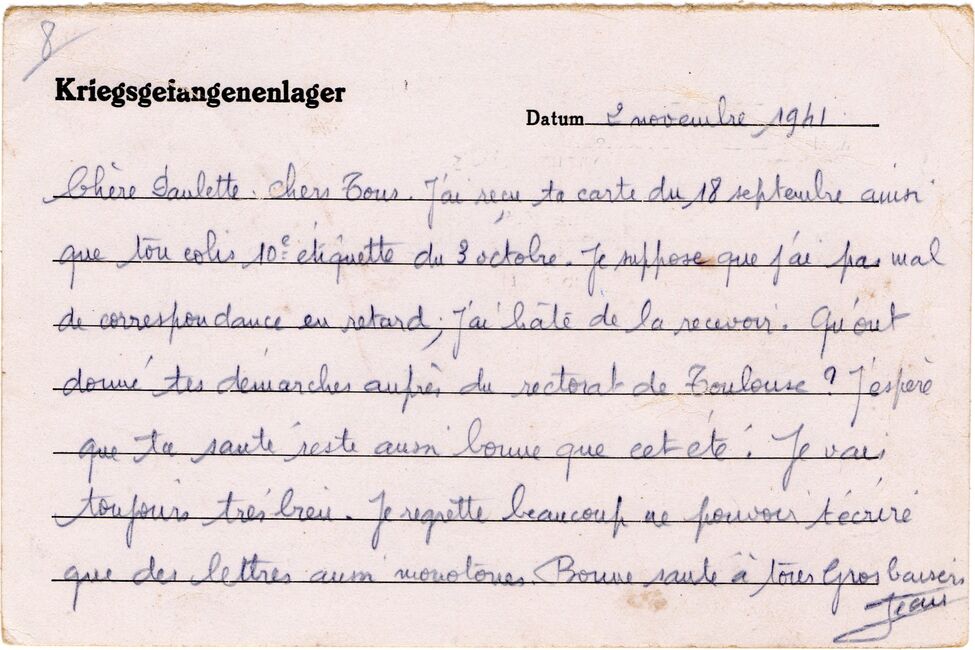 8
Kriegsgefangenenlager
Datum 2 novembre 1941
Chère Paulette. Chers Tous. J'ai reçu ta carte du 18 septembre ainsi
que ton colis 10e étiquette du 3 octobre. Je suppose que j'ai pas mal
de correspondance en retard, j'ai hâte de la recevoir. Qu'ont
donné tes démarches auprès du rectorat de Toulouse ? J'espère
que ta santé reste aussi bonne que cet été. Je vais
toujours très bien. Je regrette beaucoup ne pouvoir t'écrire
que des lettres aussi monotones. Bonne santé à tous Gros baisers
Jean